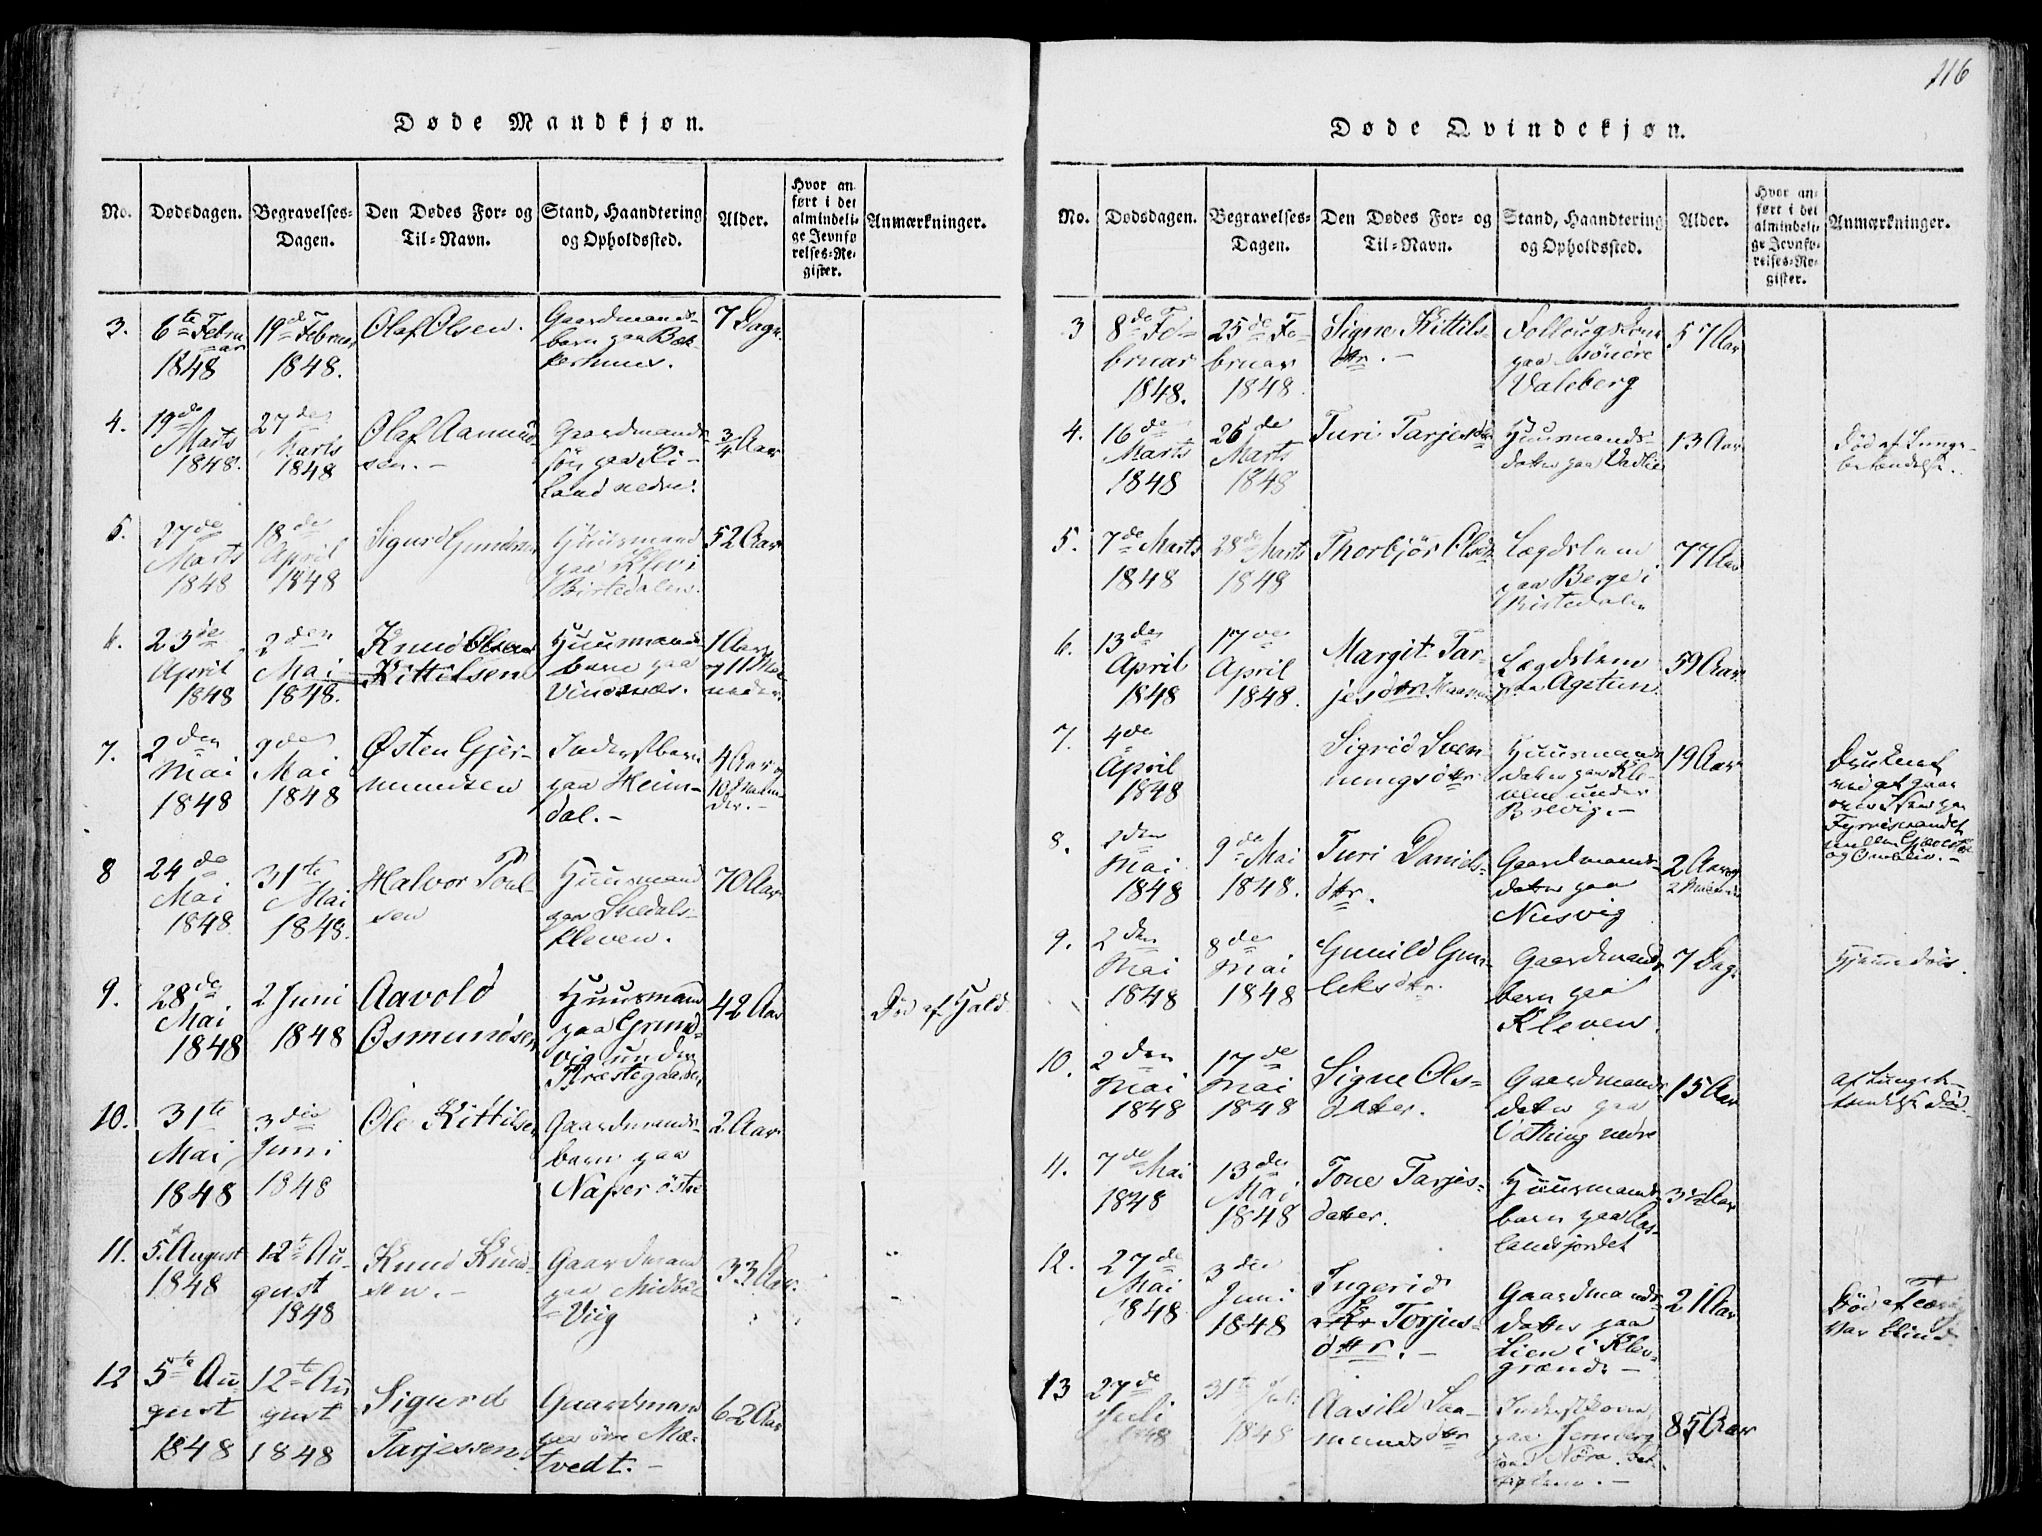 116
Døde Mandkjøn.
No. Dødsdagen. Begravelses-Dagen. Den Dødes For- og Til-Navn. Stand, Haandtering og Opholdssted. Alder. Hvor anført i det almindelige Jevnførelses-Register. Anmærkninger.
3. 6te Februar 1848 19de Februar 1848. Olaf Olsen. Gaardmands-barn paa 7 Dage
4. 19de Marts 1848. 27de Marts 1848 Olaf Aamundsen.- Gaardmands-søn paa nedre. 3/4 Aar
5. 27de Marts 1848 18de April 1848 Sigurd Gundersen Huusmand paa 52 Aar
6. 23de April 1848 2den Mai 1848. Knud Olsen Kittilsen Huusmands barn paa Vindsnæs. 1 Aar og 11 Maaneder.
7. 2den Mai 1848 9de Mai 1848 Østen Gjermundsen Inderstbarn paa Heimdal.- 4 Aar og 10 Maaneder.-
8 24de Mai 1848 31te Mai 1848. Halvor Poulsen Huusmand paa kleven. 70 Aar
9. 28de Mai 1848 2 Juni 1848 Aavold Osmundsen Huusmand paa Grundvig under Præstegaarden 42 Aar Død af Fald
10. 31te Mai 1848 3die Juni 1848 Ole Kittilsen Gaardmands-barn paa Naper østre 2 Aar
11. 5te August 1848 12te August 1848 Knud Knudsen.- Gaardmand paa Midbø Viig 33 Aar.
12 5te August 1848 12te August 1848 Sigurd Tarjessen Gaardmand paa øvre Mætvedt.- 62 Aar
Døde Qvindekjøn.
No. Dødsdagen. Begravelses-Dagen. Den Dødes For- og Til-Navn. Stand, Haandtering og Opholdssted. Alder. Hvor anført i det almindelige Jevnførelses-Register. Anmærkninger.
3 8de Februar 1848. 25de Februar 1848. Signe Kittilsdtr.- Follougskone paa søndre Valeberg 57 Aar
4. 16de Marts 1848 26de Marts 1848 Turi Tarjesdtr Huusmands-datter paa Vadlie 13 Aar Død af Lungebetændelse.
5. 7de Marts 1848 28de Marts 1848 Thorbjør Olsdtr Lægdslem paa Berge i 77 Aar
6. 13de April 1848 17de April 1848. Margit Tarjesdtr. Lægdslem paa Agetun. 59 Aar
7. 4de April 1848 Sigrid Svenningsdtr Huusmands datter paa Klevene under Brevig.- 19 Aar Druknet ved at gaae over Isen paa Fyrrisvandet mellem og
8. 2den Mai 1848 9de Mai 1848. Turi Danielsdtr. Gaardmands-datter paa Nusvig 2 Aar og 2 Maaneder
9. 2den Mai 1848 8de Mai 1848 Gunild Gunleksdtr. Gaardmands barn paa Kleven. 7 Dage Hjemmedøbt.
10. 2den Mai 1848 17de Mai 1848 Signe Olsdatter. Gaardmands datter paa Vathing nedre 15 Aar af Lungebetændelse død.
11. 7de Mai 1848 13de Mai 1848 Tone Tarjesdatter. Huusmands barn paa Aaslandsjordet 3½ Aar
12. 27de Mai 1848 3die Juni 1848 Ingerid Torjusdttr.- Gaardmands-datter paa Lien i Klevgrænd.- 21 Aar Død af Tæring Var blind
13 27de Juli 1848 31te Juli 1848 Aasild Saamundsdtr Inderstkone paa 85 Aar